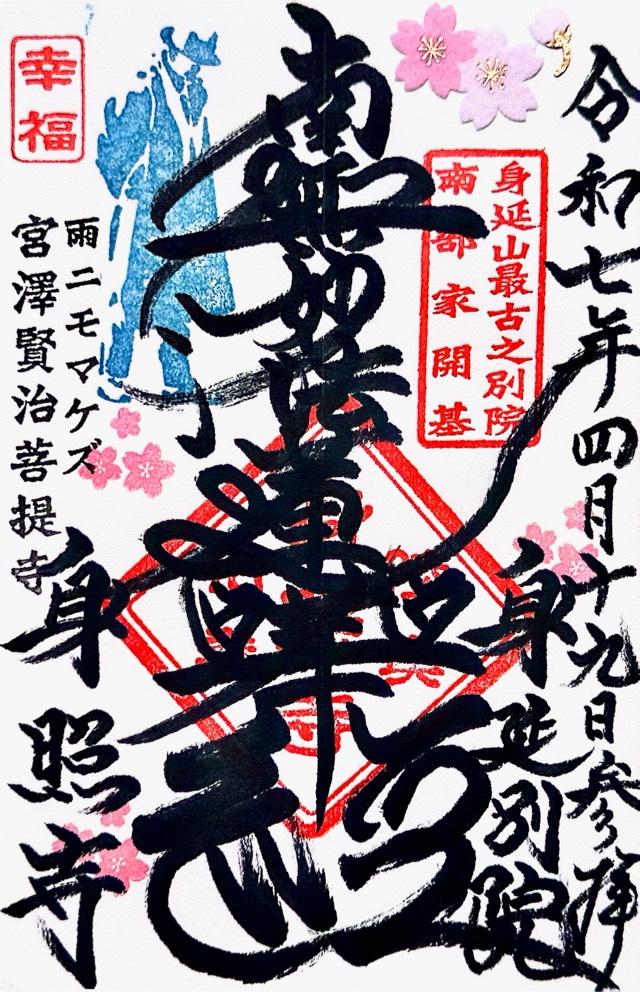 令和七年四月十九日参拝
身延山最古之別院
南部家開基
身延別院
南無妙法蓮華経
幸福
雨ニモマケズ
宮澤賢治菩提寺
身照寺